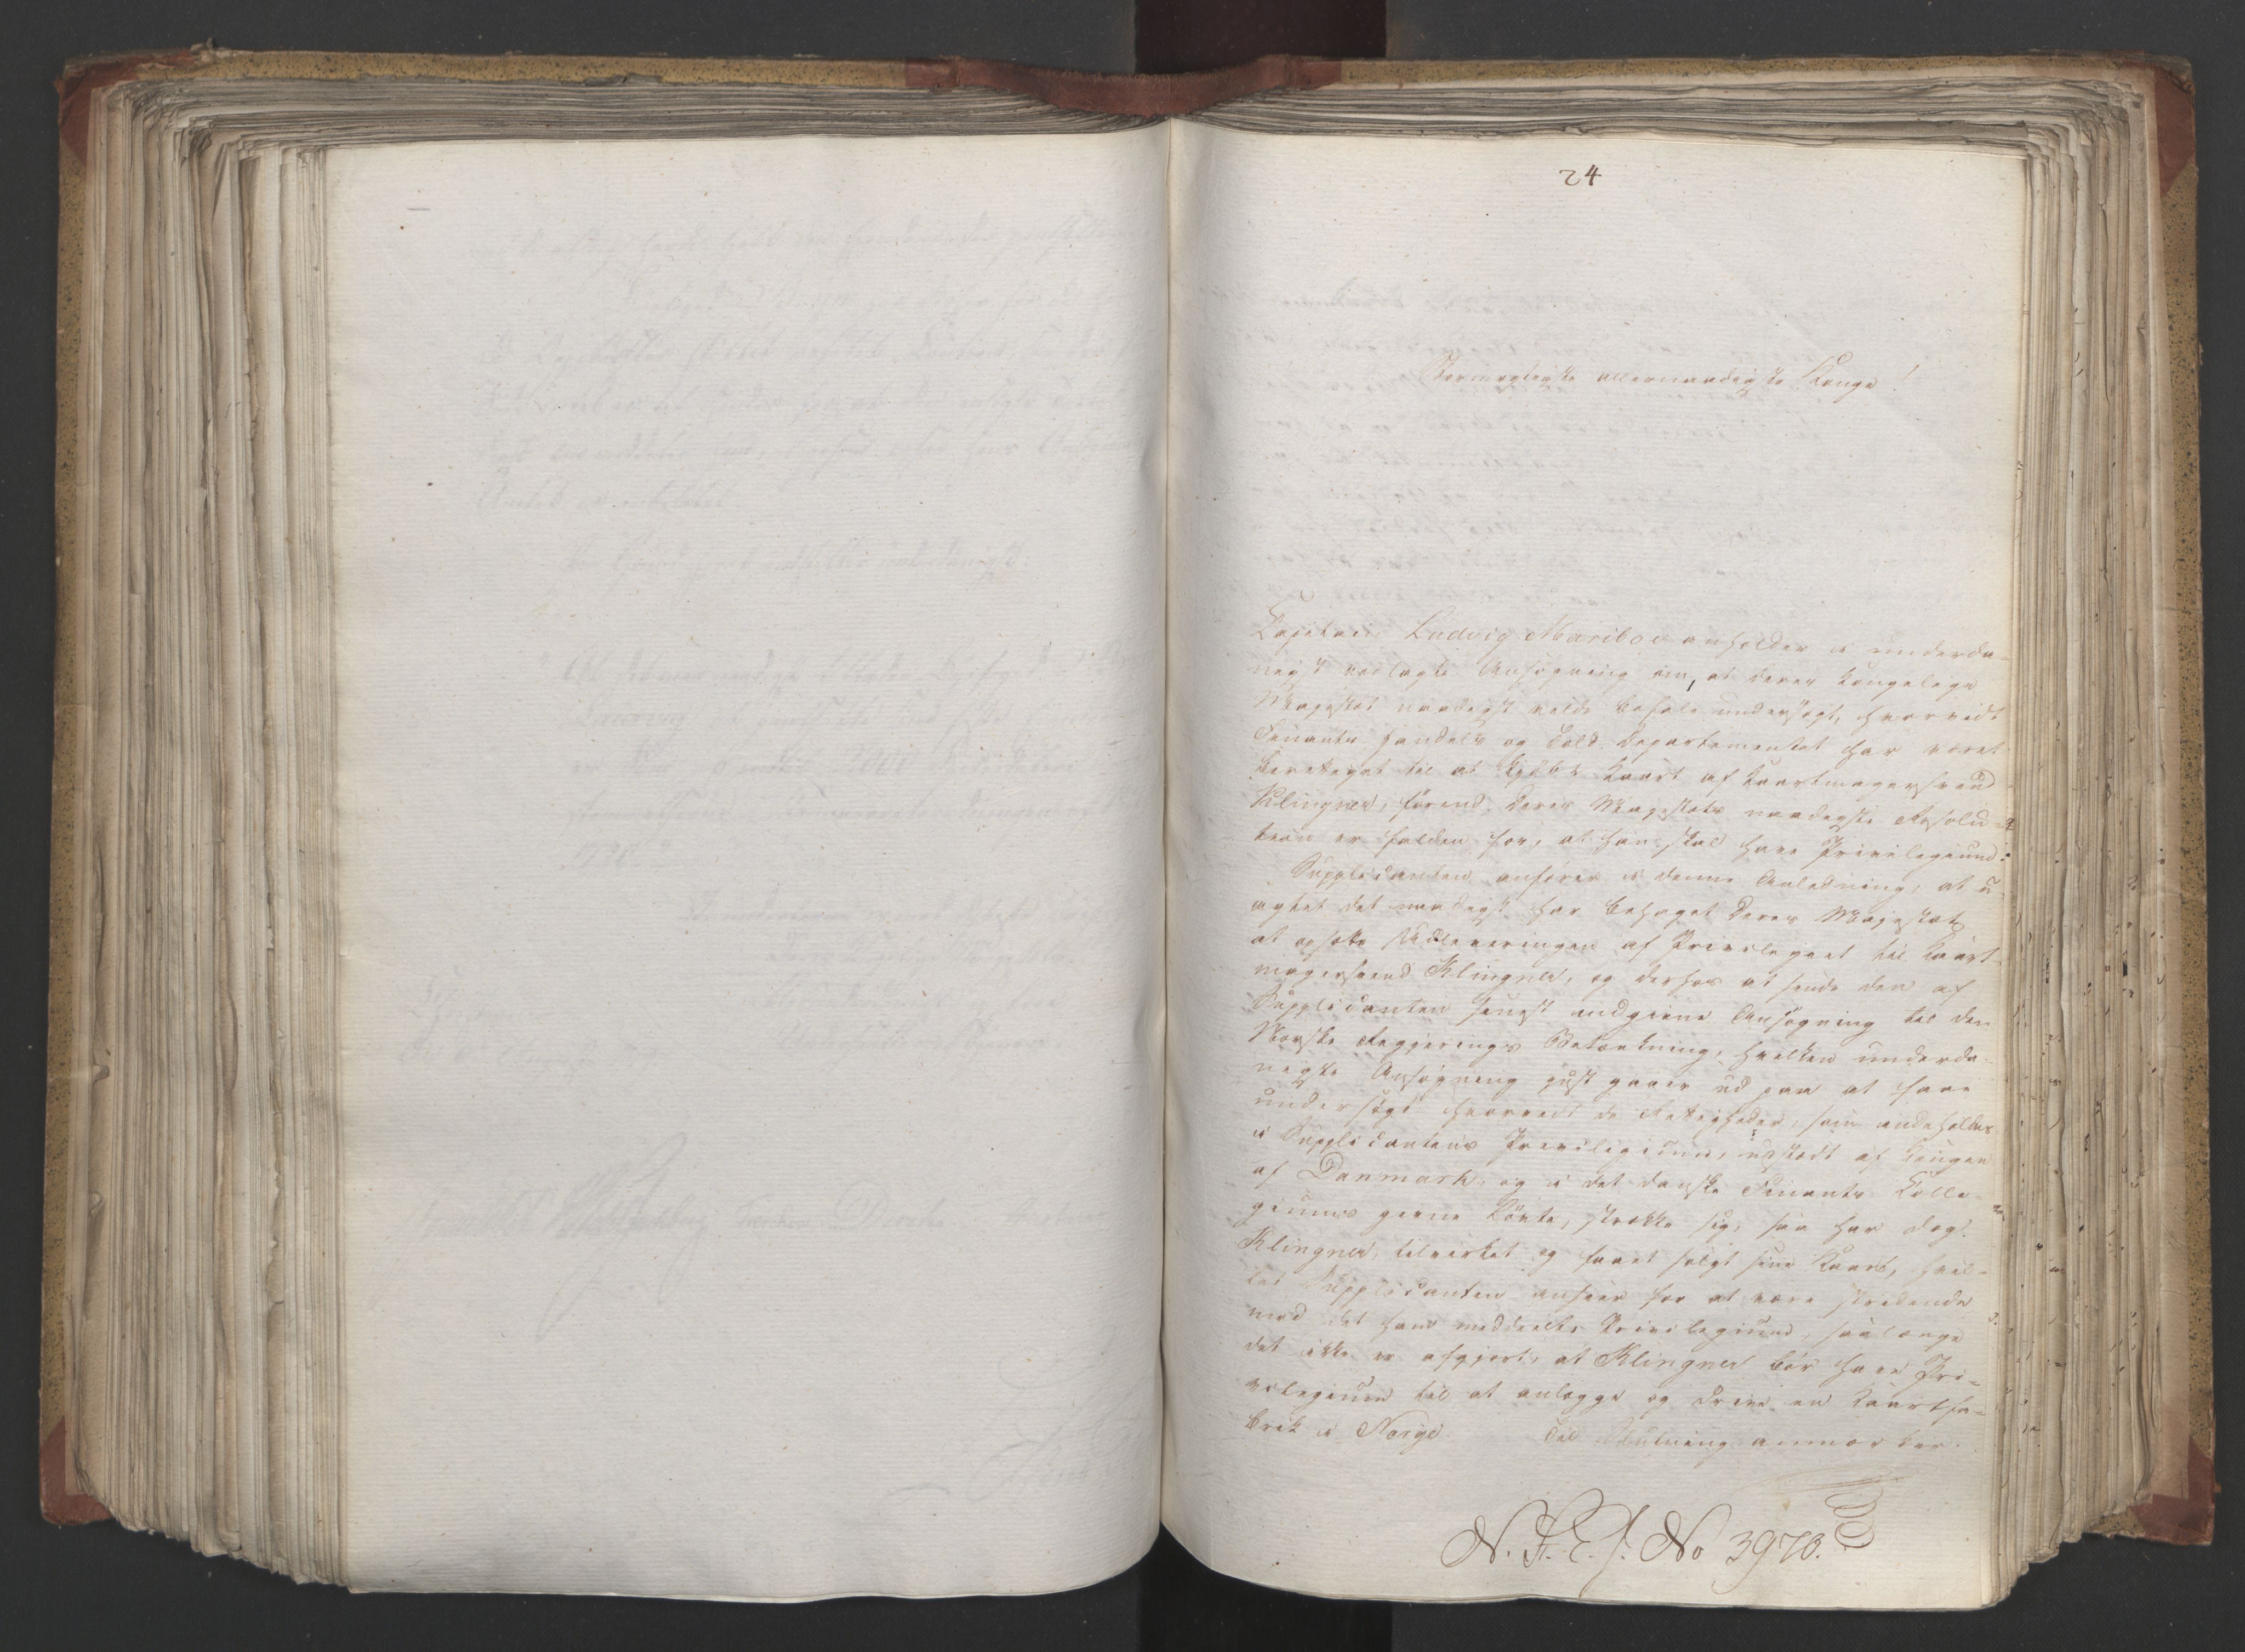 24
Stormægtigste allernaadigste Konge!
Capitain Ludvig Mariboe anholder i underda-
nigst vedlagte Ansøgning om, at Deres Kongelige
Majestæt naadigst vilde befale undersøgt, hvorvidt
Finants Handels og Told Departementet har været
berettiget til at kjøbe Kaart af Kaartmagersvend
Klingner, førend Deres Majestæts naadigste Resolu-
tion er falden for, at han skal have Privilegium.
Supplicanten anfører i denne Anledning, at u-
agtet det naadigst har behaget Deres Majestæt
at opsætte Udleveringen af Privilegiet til Kaart-
magersvend Klingner, og derhos at sende den af
Supplicanten senest indgivne Ansøgning til den
Norske Regjerings Betænkning, hvilken underda-
nigste Ansøgning just gaaer ud paa at faae
undersøgt hvorvidt de Rettigheder, som indeholdes
i Supplicantens Privilegium, udstædt af Kongen
af Danmark, og i det danske Finants Colle-
giums givne Løvte, strække sig, saa har dog
Klingner tilvirket og faaet solgt sine Kaart, hvil-
ket Supplicanten anseer for at være stridende
mod det ham meddeelte Privilegium, saalænge
det ikke er afgjort, at Klingner bør have Pri-
vilegium til at anlægge og drive en Kaartfa-
brik i Norge. Til Slutning anmærker
N. F. E. J. No 3970.